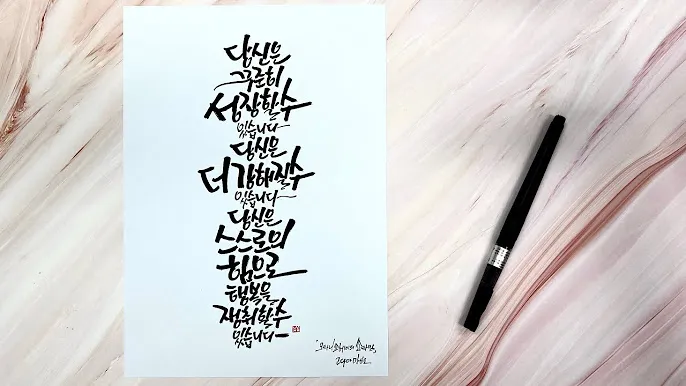 당신은
꾸준히
성장할 수
있습니다
당신은
더 강해질 수
있습니다
당신은
스스로의
힘으로
행복을
쟁취할 수
있습니다